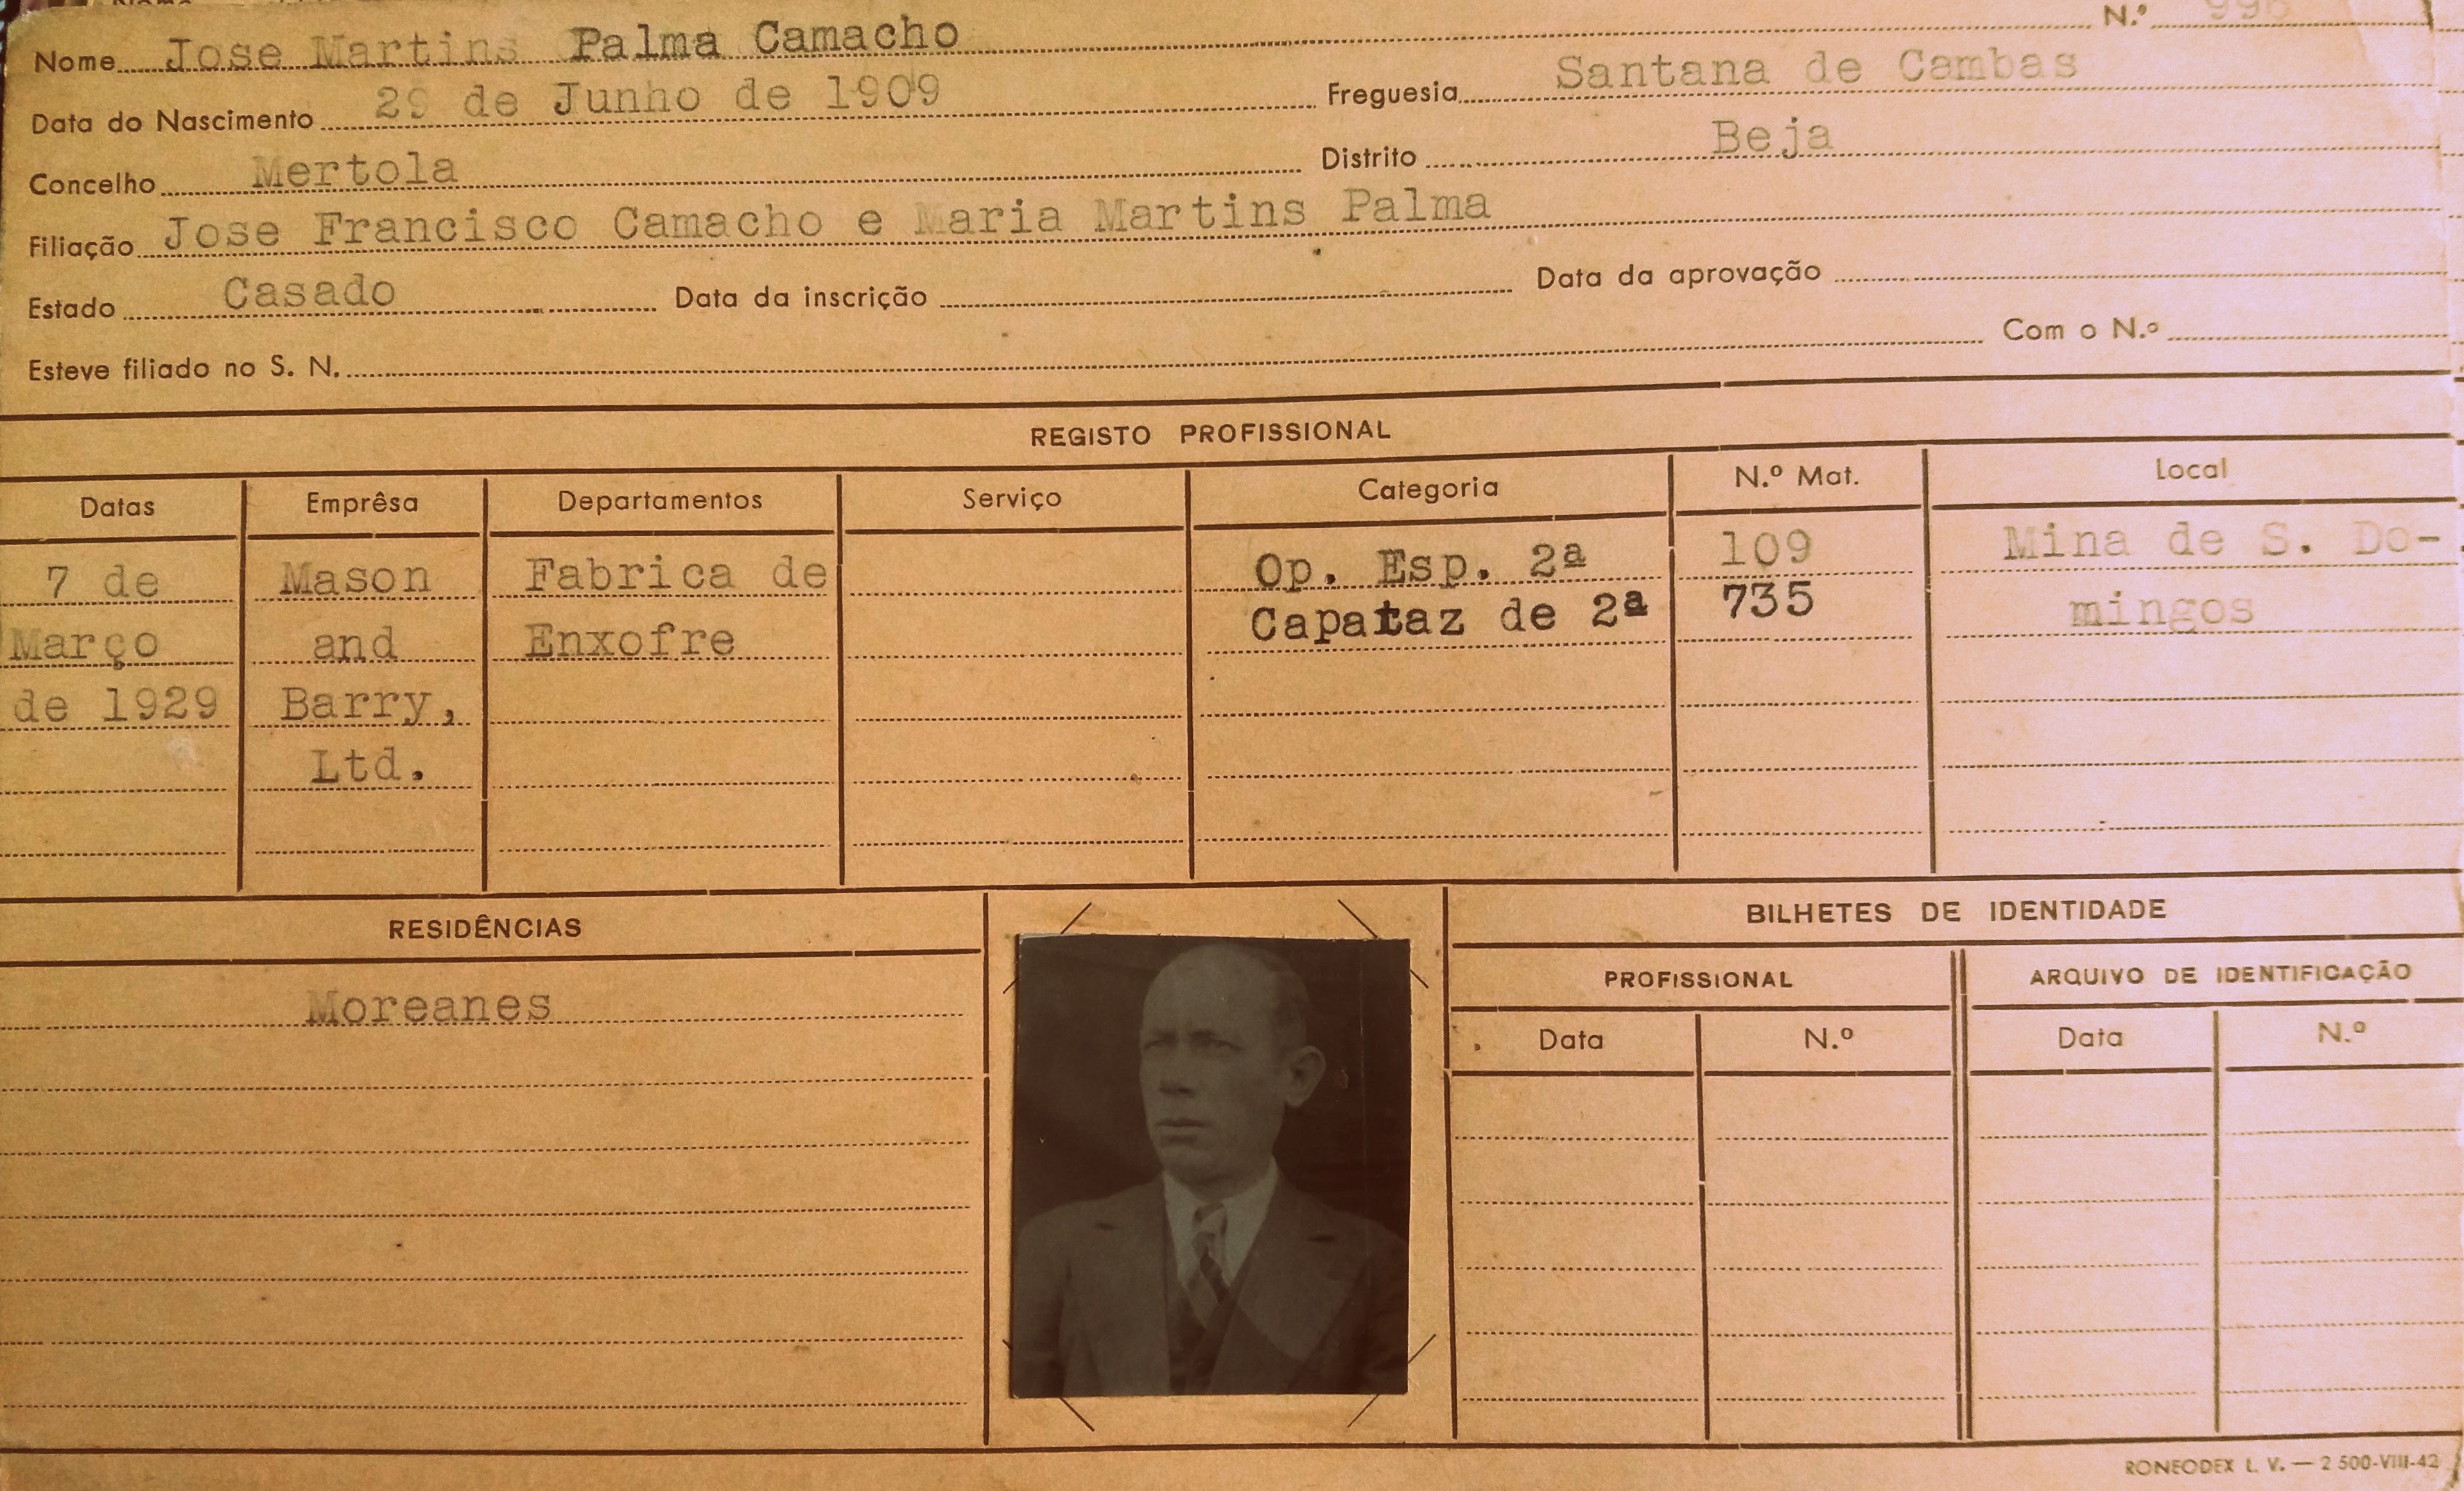 Nome Jose Martins Palma Camacho N.º
Data do Nascimento 29 de Junho de 1909 Freguesia Santana de Cambas
Concelho Mertola Distrito Beja
Filiação Jose Francisco Camacho e Maria Martins Palma
Estado Casado Data da inscrição Data da aprovação
Esteve filiado no S. N. Com o N.º
REGISTO PROFISSIONAL
Datas Emprêsa Departamentos Serviço Categoria N.º Mat. Local
7 de Mason Fabrica de Op. Esp. 2ª 109 Mina de S. Do-
Março and Enxofre Capataz de 2ª 735 mingos
de 1929 Barry,
Ltd.
RESIDÊNCIAS
Moreanes
BILHETES DE IDENTIDADE
PROFISSIONAL ARQUIVO DE IDENTIFICAÇÃO
Data N.º Data N.º
RONEODEX L. V. — 2 500-VIII-42